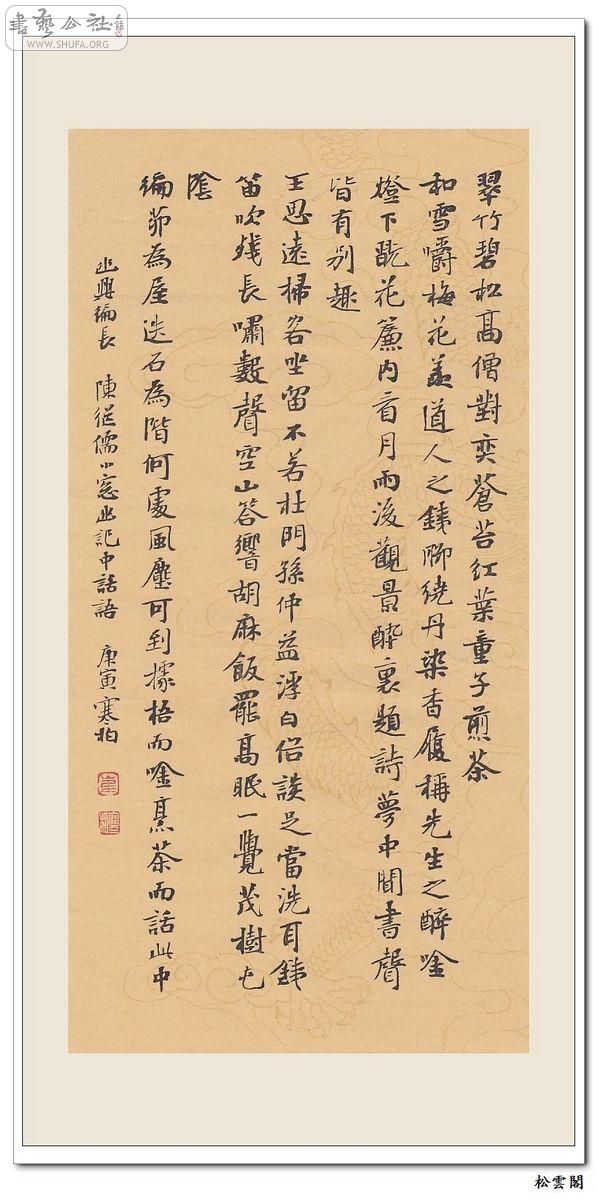 書藝公社
WWW.SHUFA.ORG
翠竹碧松高僧對奕蒼苔紅葉童子煎茶
和雪嚼梅花羨道人之銕腳繞丹染香履稱先生之醉唫
燈下翫花簾內看月雨後觀景醉裏題詩夢中聞書聲
皆有別趣
王思遠掃客坐留不若杜門孫仲益浮白俗談足當洗耳銕
笛吹殘長嘯數聲空山答響胡麻飯罷高眠一覺茂樹屯
陰
編茆為屋迭石為階何處風塵可到據梧而唫烹茶而話此中
幽興偏長 陳從儒小窓幽記中話語 庚寅寒柏
松雲閣